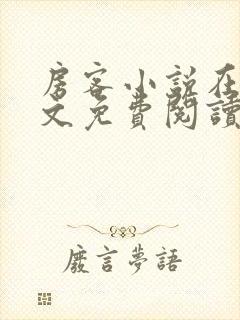 房客小說在
文免費閱讀
廢言夢語